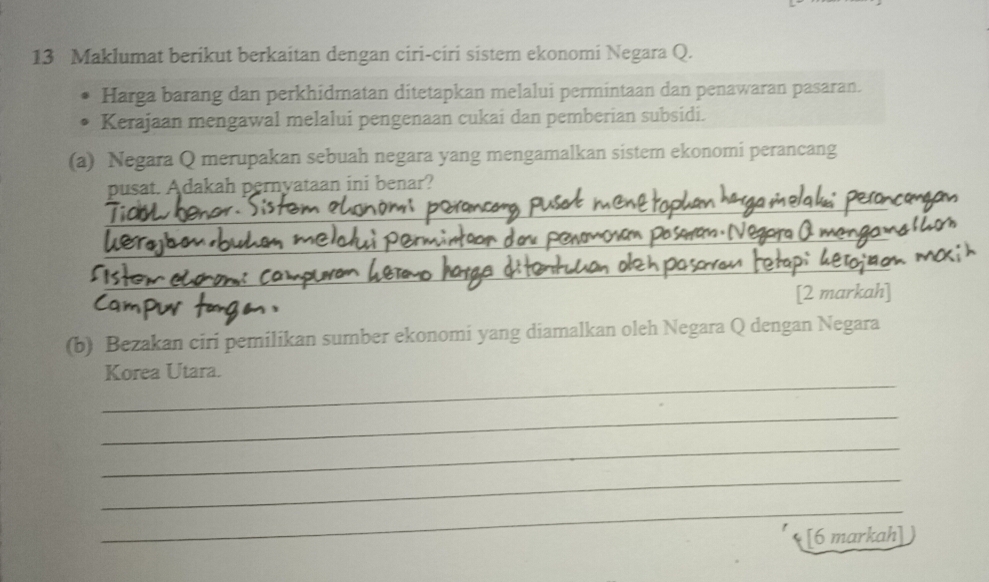 13 Maklumat berikut berkaitan dengan ciri-ciri sistem ekonomi Negara Q.
• Harga barang dan perkhidmatan ditetapkan melalui permintaan dan penawaran pasaran.
• Kerajaan mengawal melalui pengenaan cukai dan pemberian subsidi.
(a) Negara Q merupakan sebuah negara yang mengamalkan sistem ekonomi perancang
pusat. Adakah pernyataan ini benar?
Tidak benar. Sistem ekonomi perancang pusat menetapkan harga melalui perancangan
kerajaan. bukan melalui permintaan dan penawaran pasaran. Negara Q mengamalkan
Sistem ekonomi campuran kerana harga ditentukan oleh pasaran tetapi kerajaan masih
Campur tangan.
[2 markah]
(b) Bezakan ciri pemilikan sumber ekonomi yang diamalkan oleh Negara Q dengan Negara
Korea Utara.
[6 markah]